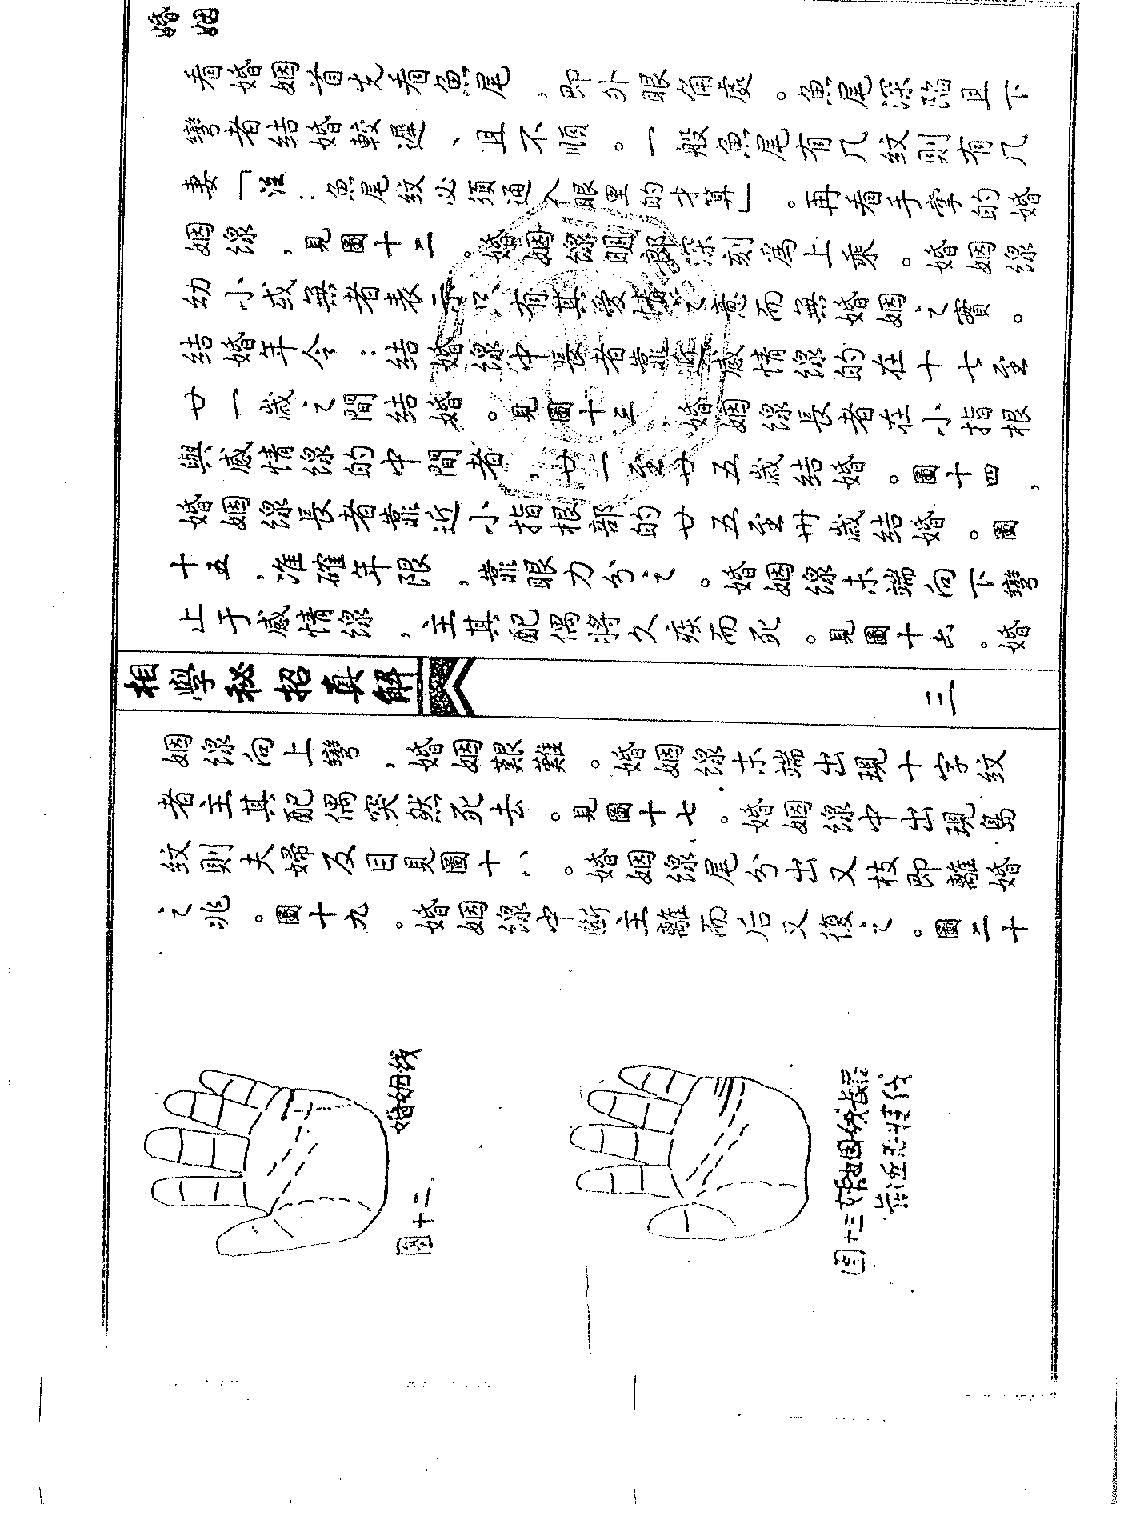 婚姻
看婚姻首先看魚尾，即外眼角處。魚尾深陷且下
彎者結婚較遲、且不順。一般魚尾有几紋則有几
妻「注：魚尾紋必須通入眼里的才算」。再看手掌的婚
姻線，見圖十二。婚姻線明郎深刻爲上乘。婚姻線
幼小或無者表示只有其愛情之意而無婚姻之實。
結婚年令：結婚線中長者靠近感情線的在十七至
廿一歲之間結婚。見圖十三，婚姻線長者在小指根
與感情線的中間者，廿一至廿五歲結婚。圖十四，
婚姻線長者靠近小指根部的廿五至卅歲結婚。圖
十五，准確年限，靠眼力分之。婚姻線末端向下彎
止于感情線，主其配偶將久疾而死。見圖十六。婚
相學秘招真解
三
姻線向上彎，婚姻艱難。婚姻線末端出現十字紋
者主其配偶突然死去。見圖十七。婚姻線中出現島
紋則夫婦反目見圖十八。婚姻線尾分出叉枝即離婚
之兆。圖十九。婚姻線中斷主離而后又復之。圖二十
圖十二
婚姻线
圖十三婚姻线長
靠近感情线